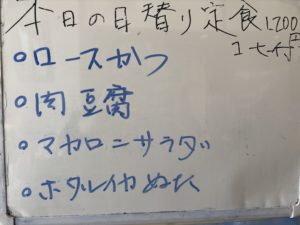 本日の日替り定食 1,200円
コーヒー付
○ロースかつ
○肉豆腐
○マカロニサラダ
○ホタルイカぬた